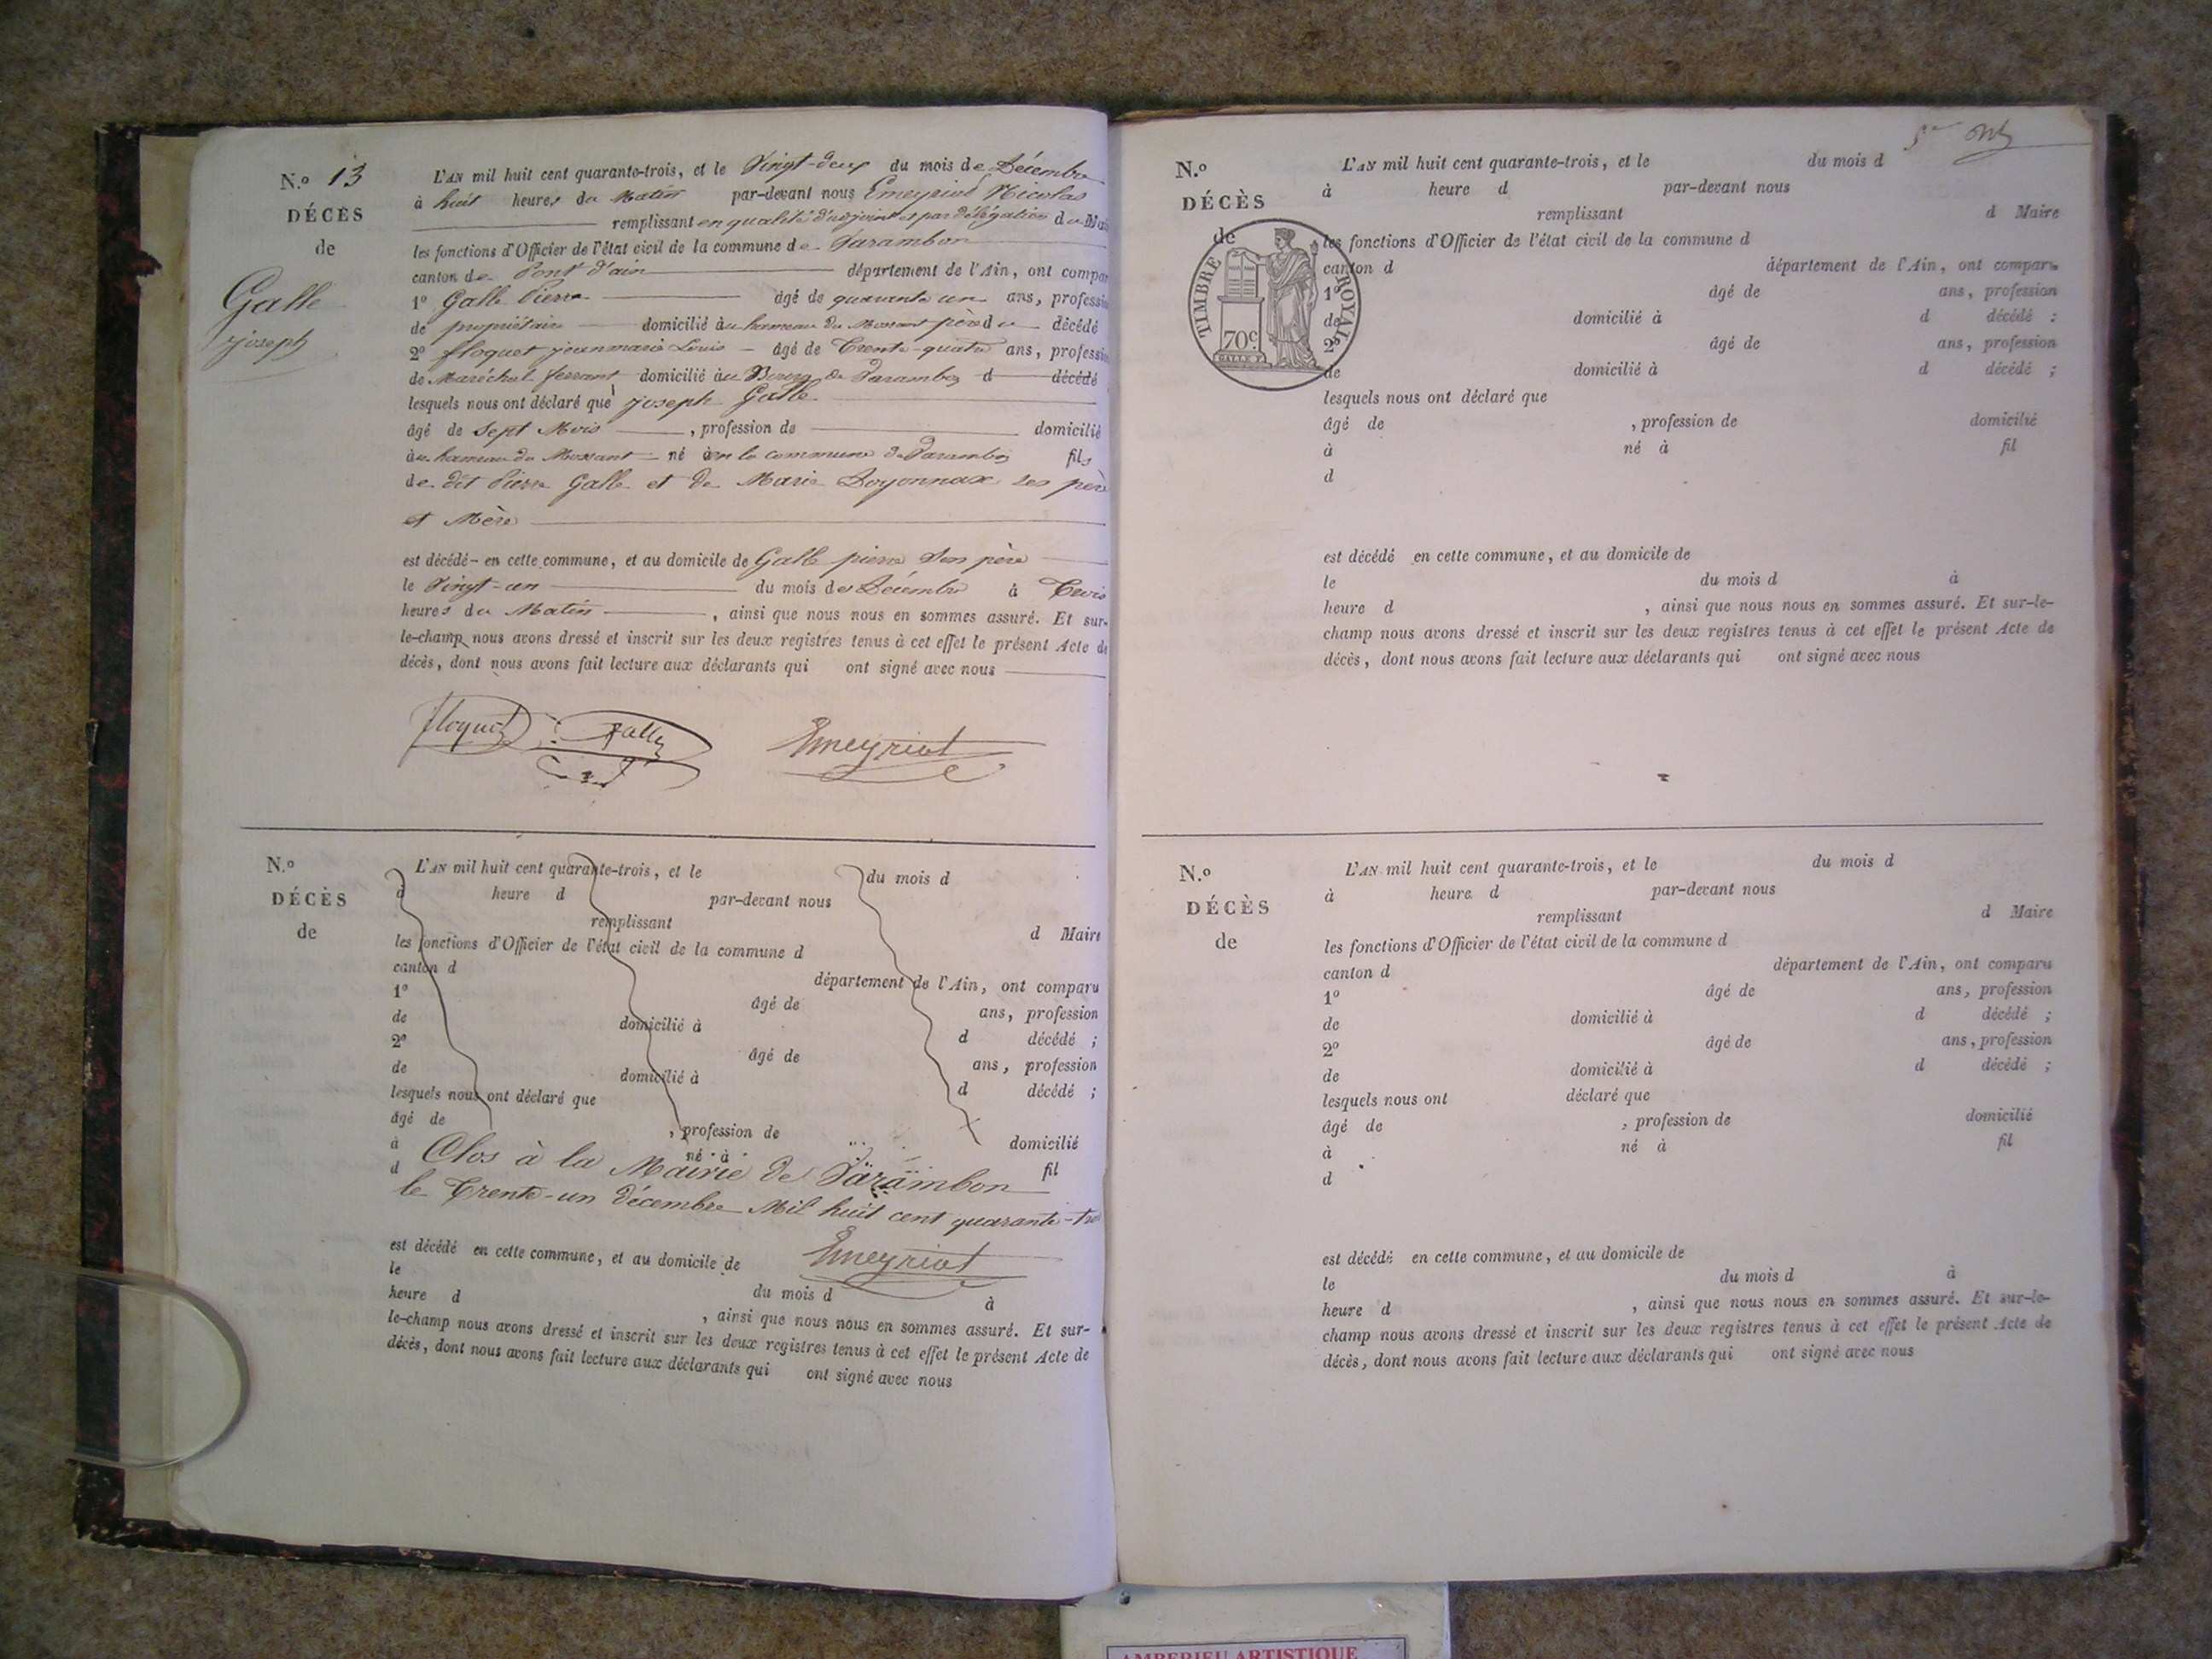 N.o 13
DÉCÈS
de
Galle
joseph
L'AN mil huit cent quarante-trois, et le Vingt-deux du mois de Décembre
à huit heures du Matin par-devant nous Emeyriat Nicolas
remplissant en qualité d'adjoint et par délégation du Mai
les fonctions d'Officier de l'état civil de la commune de Varambon
canton de Pont d'ain département de l'Ain, ont compar
1o Galle Pierre âgé de quarante un ans, professi
de propriétaire domicilié àu hameau du Mossant père du décédé
2o floquet jeanmarie Louis âgé de Trente-quatre ans, professi
de Maréchal ferrant domicilié àu Bourg de Varambon d décédé
lesquels nous ont déclaré que joseph Galle
âgé de Sept Mois , profession de domicilié
àu hameau du Mossant né àen la commune de Varambon fils
de dit Pierre Galle et de Marie Doyonnax ses père
et Mère
est décédé en cette commune, et au domicile de Galle pierre Son père
le Vingt-un du mois de Décembre à
heures du Matin , ainsi que nous nous en sommes assuré. Et sur-
le-champ nous avons dressé et inscrit sur les deux registres tenus à cet effet le présent Acte de
décès, dont nous avons fait lecture aux déclarants qui ont signé avec nous
floquet Galle Emeyriat
N.o
DÉCÈS
de
L'AN mil huit cent quarante-trois, et le du mois d
à heure d par-devant nous
remplissant d Maire
les fonctions d'Officier de l'état civil de la commune d
canton d département de l'Ain, ont comparu
1o âgé de ans, profession
de domicilié à d décédé ;
2o âgé de ans, profession
de domicilié à d décédé ;
lesquels nous ont déclaré que
âgé de , profession de domicilié
à né à fil
d
Clos à la Mairie de Varambon
le Trente-un décembre Mil huit cent quarante-trois
Emeyriat
est décédé en cette commune, et au domicile de
le du mois d à
heure d , ainsi que nous nous en sommes assuré. Et sur-
le-champ nous avons dressé et inscrit sur les deux registres tenus à cet effet le présent Acte de
décès, dont nous avons fait lecture aux déclarants qui ont signé avec nous
N.o
DÉCÈS
de
TIMBRE ROYAL
70c.
L'AN mil huit cent quarante-trois, et le du mois d
à heure d par-devant nous
remplissant d Maire
les fonctions d'Officier de l'état civil de la commune d
canton d département de l'Ain, ont comparu
1o âgé de ans, profession
de domicilié à d décédé ;
2o âgé de ans, profession
de domicilié à d décédé ;
lesquels nous ont déclaré que
âgé de , profession de domicilié
à né à fil
d
est décédé en cette commune, et au domicile de
le du mois d à
heure d , ainsi que nous nous en sommes assuré. Et sur-le-
champ nous avons dressé et inscrit sur les deux registres tenus à cet effet le présent Acte de
décès, dont nous avons fait lecture aux déclarants qui ont signé avec nous
N.o
DÉCÈS
de
L'AN mil huit cent quarante-trois, et le du mois d
à heure d par-devant nous
remplissant d Maire
les fonctions d'Officier de l'état civil de la commune d
canton d département de l'Ain, ont comparu
1o âgé de ans, profession
de domicilié à d décédé ;
2o âgé de ans, profession
de domicilié à d décédé ;
lesquels nous ont déclaré que
âgé de , profession de domicilié
à né à fil
d
est décédé en cette commune, et au domicile de
le du mois d à
heure d , ainsi que nous nous en sommes assuré. Et sur-le-
champ nous avons dressé et inscrit sur les deux registres tenus à cet effet le présent Acte de
décès, dont nous avons fait lecture aux déclarants qui ont signé avec nous
AMBERIEU ARTISTIQUE